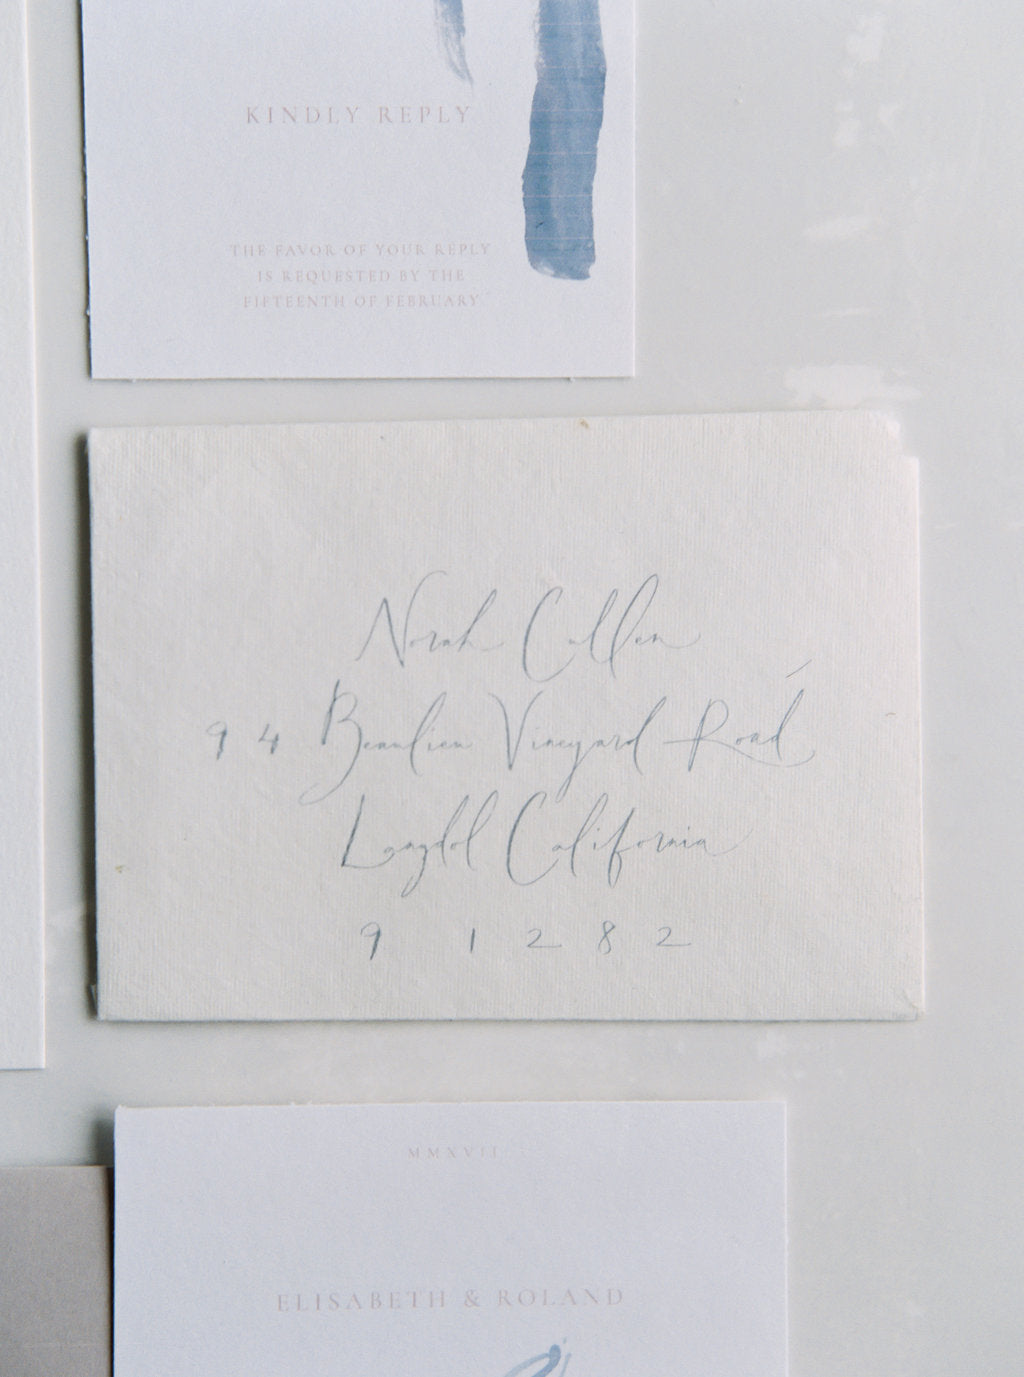 KINDLY REPLY
THE FAVOR OF YOUR REPLY
IS REQUESTED BY THE
FIFTEENTH OF FEBRUARY
Norah Cullen
94 Beaulieu Vineyard Road
Langdol California
91282
MMXVII
ELISABETH & ROLAND